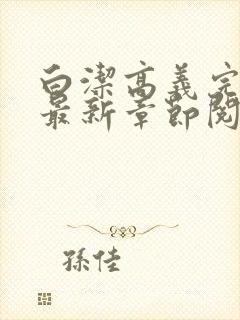 白潔高義完
最新章節閱
孫佳